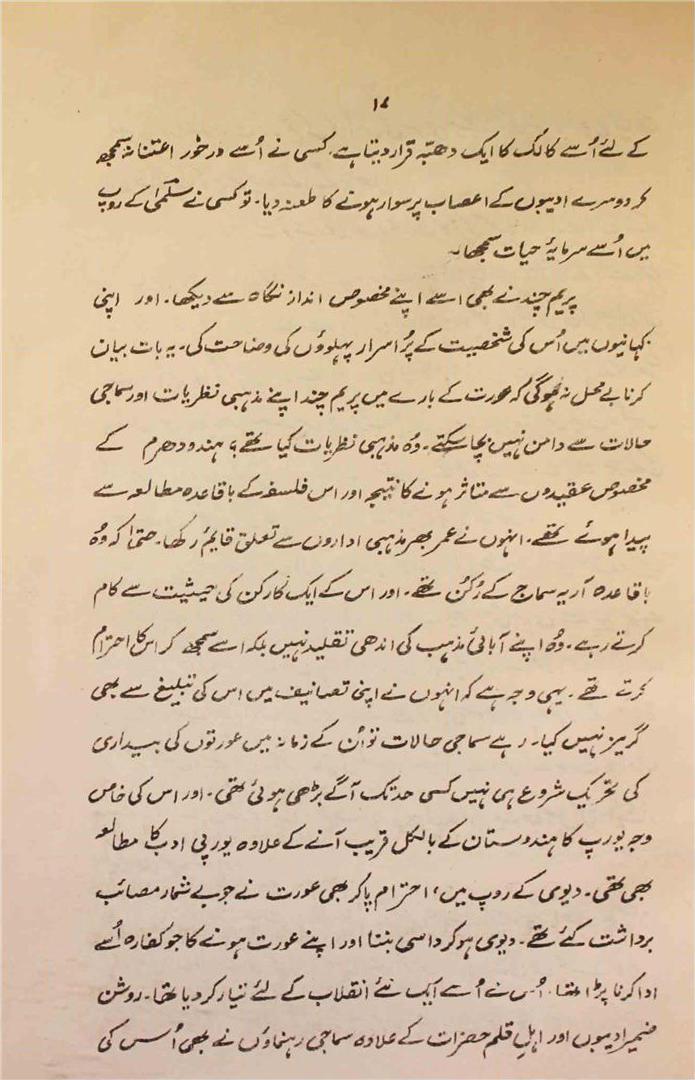 ۱۷
کے لئے اُسے کالک کا ایک دھبّہ قرار دیتا ہے۔ کسی نے اُسے درخور اعتنا نہ سمجھ
کر دوسرے ادیبوں کے اعصاب پر سوار ہونے کا طعنہ دیا۔ تو کسی نے سلمٰی کے روپ
میں اُسے سرمایۂ حیات سمجھا۔
پریم چند نے بھی اسے اپنے مخصوص انداز نگاہ سے دیکھا۔ اور اپنی
کہانیوں میں اُس کی شخصیت کے پُر اسرار پہلوؤں کی وضاحت کی۔ یہ بات بیان
کرنا بے محل نہ ہوگی کہ عورت کے بارے میں پریم چند اپنے مذہبی نظریات اور سماجی
حالات سے دامن نہیں بچا سکتے۔ وُہ مذہبی نظریات کیا تھے؟ ہندو دھرم کے
مخصوص عقیدوں سے متاثر ہونے کا نتیجہ اور اس فلسفہ کے باقاعدہ مطالعہ سے
پیدا ہوئے تھے۔ انہوں نے عمر بھر مذہبی اداروں سے تعلق قایم رکھا۔ حتیٰ کہ وُہ
باقاعدہ آریہ سماج کے رُکن تھے۔ اور اس کے ایک کارکن کی حیثیت سے کام
کرتے رہے۔ وُہ اپنے آبائی مذہب کی اندھی تقلید نہیں بلکہ اسے سمجھ کر اس کا احترام
کرتے تھے۔ یہی وجہ ہے کہ انہوں نے اپنی تصانیف میں اس کی تبلیغ سے بھی
گریز نہیں کیا۔ رہے سماجی حالات تو اُن کے زمانہ میں عورتوں کی بیداری
کی تحریک شروع ہی نہیں کسی حد تک آگے بڑھی ہوئی تھی۔ اور اس کی خاص
وجہ یورپ کا ہندوستان کے بالکل قریب آنے کے علاوہ یورپی ادب کا مطالعہ
بھی تھی۔ دیوی کے روپ میں، احترام پا کر بھی عورت نے جو بے شمار مصائب
برداشت کئے تھے۔ دیوی ہو کر داسی بننا اور اپنے عورت ہونے کا جو کفارہ اُسے
ادا کرنا پڑا تھا۔ اُس نے اُسے ایک نئے انقلاب کے لئے تیار کر دیا تھا۔ روشن
ضمیر ادیبوں اور اہلِ قلم حضرات کے علاوہ سماجی رہنماؤں نے بھی اُس کی